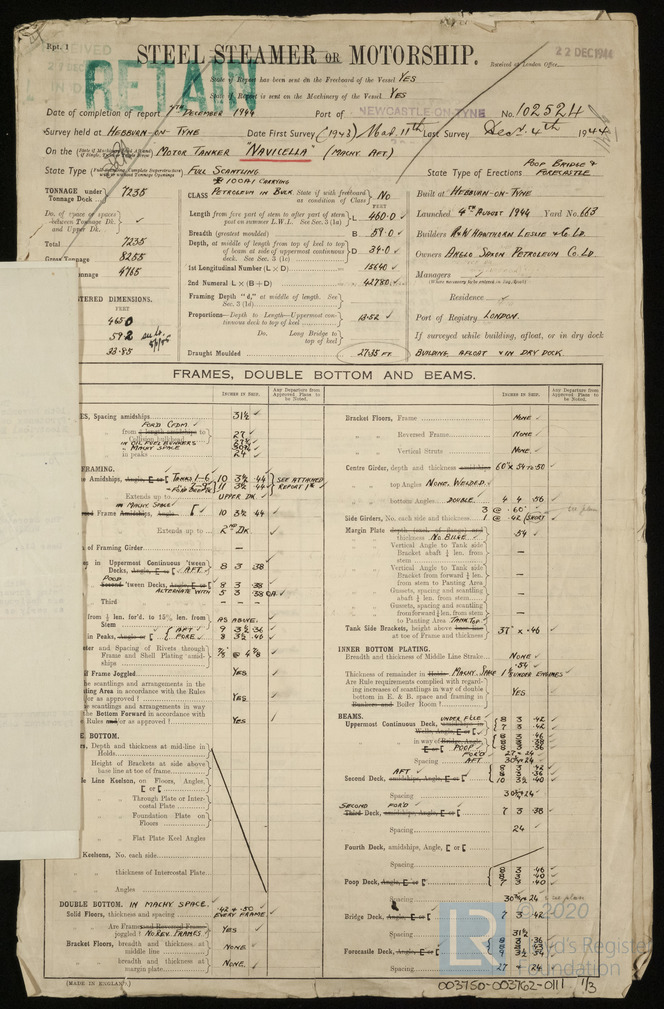 Rpt. 1
RECEIVED
RETAIN
22 DEC 1944
STEEL STEAMER OR MOTORSHIP.
Received at London Office
State if Report has been sent on the Freeboard of the Vessel YES
State if Report is sent on the Machinery of the Vessel YES
Date of completion of report 7TH DECEMBER 1944 Port of NEWCASTLE-ON-TYNE No. 102524
Survey held at HEBBURN-ON-TYNE Date First Survey (1943) Mar. 11th Last Survey Dec. 4th 1944
On the MOTOR TANKER "NAVICELLA" (MACHY. AFT)
State Type FULL SCANTLING State Type of Erections POOP BRIDGE & FORECASTLE
TONNAGE under Tonnage Deck 7235
Do. of space or spaces between Tonnage Dk. and Upper Dk.
Total 7235
Gross Tonnage 8255
4765
REGISTERED DIMENSIONS.
FEET
465.0
59.2
33.85
CLASS 100A1 CARRYING PETROLEUM IN BULK State if with freeboard as condition of Class No
FEET
Length from fore part of stem to after part of stern post on summer L.W.L. See Sec. 3 (1a) L 460.0
Breadth (greatest moulded) B 59.0
Depth, at middle of length from top of keel to top of beam at side of uppermost continuous deck. See Sec. 3 (1c) D 34.0
1st Longitudinal Number (L × D) 15640
2nd Numeral L × (B + D) 42780
Framing Depth "d," at middle of length. See Sec. 3 (1d)
Proportions—Depth to Length—Uppermost continuous deck to top of keel 13.52
Do. Long Bridge to top of keel
Draught Moulded 27.35 FT.
Built at HEBBURN-ON-TYNE
Launched 4TH AUGUST 1944 Yard No. 663
Builders R & W HAWTHORN LESLIE & CO. LD
Owners ANGLO SAXON PETROLEUM CO. LD
Managers
(Where necessary to be entered in Reg. Book)
Residence
Port of Registry LONDON.
If surveyed while building, afloat, or in dry dock
BUILDING AFLOAT & IN DRY DOCK
FRAMES, DOUBLE BOTTOM AND BEAMS.
INCHES IN SHIP. Any Departure from Approved Plans to be Noted.
INCHES IN SHIP. Any Departure from Approved Plans to be Noted.
ES, Spacing amidships 31½
FORD CFDM.
from ½ length amidships to Collision bulkhead 27
IN OIL FUEL BUNKERS
MACHY SPACE
in peaks 24
FRAMING.
Amidships, Angle, E or [ TANKS 1-6 10 3½ .44 SEE ATTACHED
11 3½ .44 REPORT 1*
Extends up to UPPER DK.
IN MACHY SPACE
Frame Amidships, Angle 10 3½ .44
Extends up to 2ND DK
of Framing Girder —
in Uppermost Continuous 'tween Decks, Angle, E or [ AFT 8 3 .38
POOP
Second 'tween Decks, Angle, E or [ 8 3 .38
ALTERNATE WITH 5 3 .38 OA.
Third — — —
from ¼ len. for'd. to 15% len. from Stem AS ABOVE.
in Peaks, Angle or [ AFT 9 3½
FORE 8 3½ .46
ter and Spacing of Rivets through Frame and Shell Plating amidships 7/8 @ 4 7/8
if Frame Joggled YES
the scantlings and arrangements in the ting Area in accordance with the Rules or as approved ! YES
the scantlings and arrangements in the Bottom Forward in accordance with Rules and/or as approved ! YES
E. BOTTOM.
rs, Depth and thickness at mid-line in Holds
Height of Brackets at side above base line at toe of frame
le Line Keelson, on Floors, Angles, [ or [
Through Plate or Intercostal Plate
Foundation Plate on Floors
Flat Plate Keel Angles
Keelsons, No. each side
thickness of Intercostal Plate
Angles
DOUBLE BOTTOM. IN MACHY SPACE.
Solid Floors, thickness and spacing .42 & .50 EVERY FRAME
Are Frame and Reversed Frame joggled ! NO REV. FRAMES. YES
Bracket Floors, breadth and thickness at middle line NONE.
breadth and thickness at margin plate NONE.
Bracket Floors, Frame NONE
" " Reversed Frame NONE
" " Vertical Struts NONE.
Centre Girder, depth and thickness amidships 60 × .54 to .50
" top Angles NONE. WELDED.
" bottom Angles DOUBLE 4 4 .56
Side Girders, No. each side and thickness 3 @ .60
1 @ .42 (SHORT)
Margin Plate depth (excl. of flange) and thickness NO BILGE .54
" Vertical Angle to Tank side Bracket abaft ¼ len. from stem —
" Vertical Angle to Tank side Bracket from forward ¼ len. from stem to Panting Area —
" Gussets, spacing and scantling abaft ¼ len. from stem —
" Gussets, spacing and scantling from forward ¼ len. from stem to Panting Area —
TANK TOP
Tank Side Brackets, height above base line at toe of Frame and thickness 37" × .46
INNER BOTTOM PLATING.
Breadth and thickness of Middle Line Strake NONE
Thickness of remainder in Holds MACHY. SPACE .54 1⅛ UNDER ENGINES
Are Rule requirements complied with regarding increases of scantlings in way of double bottom in E. & B. space and framing in Bunkers and Boiler Room ! YES
BEAMS.
Uppermost Continuous Deck, amidships UNDER FCLE 8 3 .42
Wells, Angle, E or [ 7 3 .42
in way of Bridge, Angle, E or [ POOP 8 3 .46
8 3 .38
8 3 .36
Spacing FOR'D 27 & 24
AFT 30¾ & 24
Second Deck, AFT amidships, Angle, E or [ 8 3 .42
8 3 .36
10 3½ .40
Spacing 30¾ & 24
SECOND FOR'D
Third Deck, amidships, Angle, E or [ 7 3 .38
Spacing 24
Fourth Deck, amidships, Angle, [ or [
Spacing
Poop Deck, Angle, E or [ 8 3 .46
8 3 .40
7 3 .40
Spacing 30¾ & 24
Bridge Deck, Angle, E or [ 7 3 .42
Spacing 31½
Forecastle Deck, Angle, E or [ 8 3 .36
9 3½ .54
Spacing 27 & 24
(MADE IN ENGLAND.)
LR
© 2020
Lloyd's Register
Foundation
003750-003762-0111 1/3